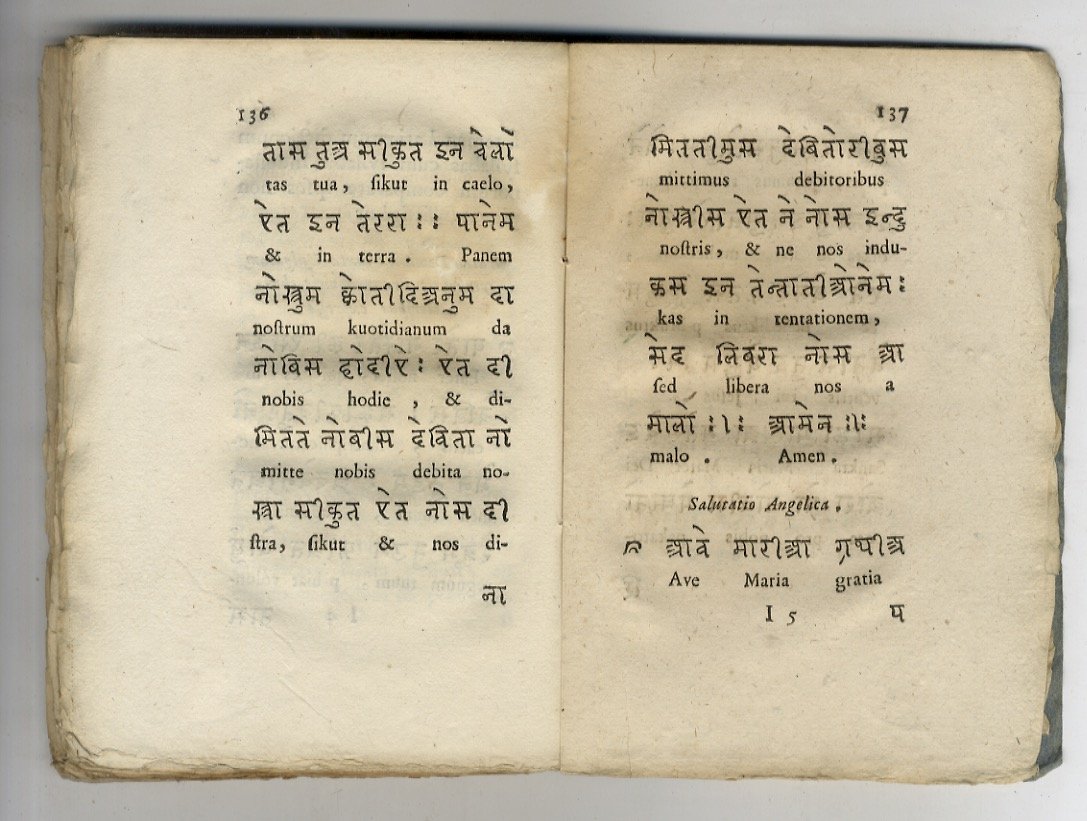 136
तास तुअ सीकुत इन चेलो
tas tua, ſikut in caelo,
ऐत इन तेररा ः पानेम
& in terra . Panem
नोस्त्रुम क्वोतीदिअनुम दा
noſtrum kuotidianum da
नोबिस होदीऐ ः ऐत दी
nobis hodie , & di-
मितते नोबीस देविता नो
mitte nobis debita no-
स्त्रा सीकुत ऐत नोस दी
ſtra, ſikut & nos di-
ना
137
मिततीमुस देबितोरीबुस
mittimus debitoribus
नोस्त्रीस ऐत ने नोस इन्दु
noſtris, & ne nos indu-
कस इन तेन्तातीओनेम ः
kas in tentationem,
सेद लिबरा नोस आ
ſed libera nos a
मालो ः।ः आमेन ः॥ः
malo . Amen .
Salutatio Angelica .
आवे मारीआ ग्रथीअ
Ave Maria gratia
I 5 प